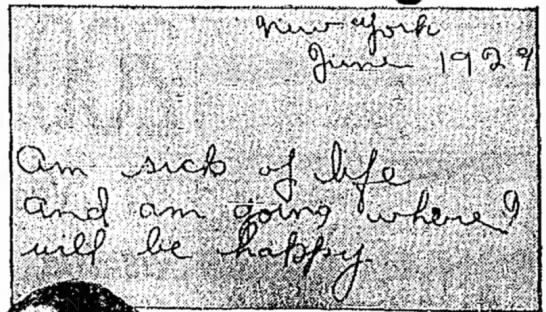 New York
June 1929
Am sick of life
and am going where I
will be happy.